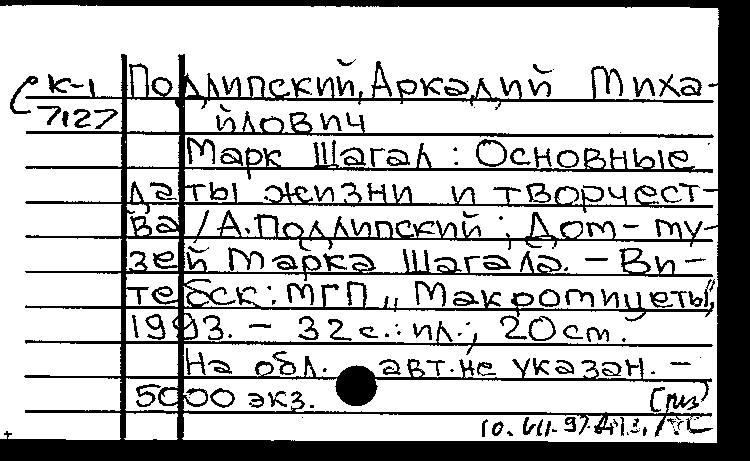 К-1 Подлипский, Аркадий Миха-
7127 йлович
Марк Шагал : Основные
даты жизни и творчест-
ва / А. Подлипский ; Дом-му-
зей Марка Шагала. - Ви-
тебск : МГП „Макромицеты",
1993. - 32 с. : ил. ; 20 см.
На обл. авт. не указан. -
5000 экз.
10. VII. 97